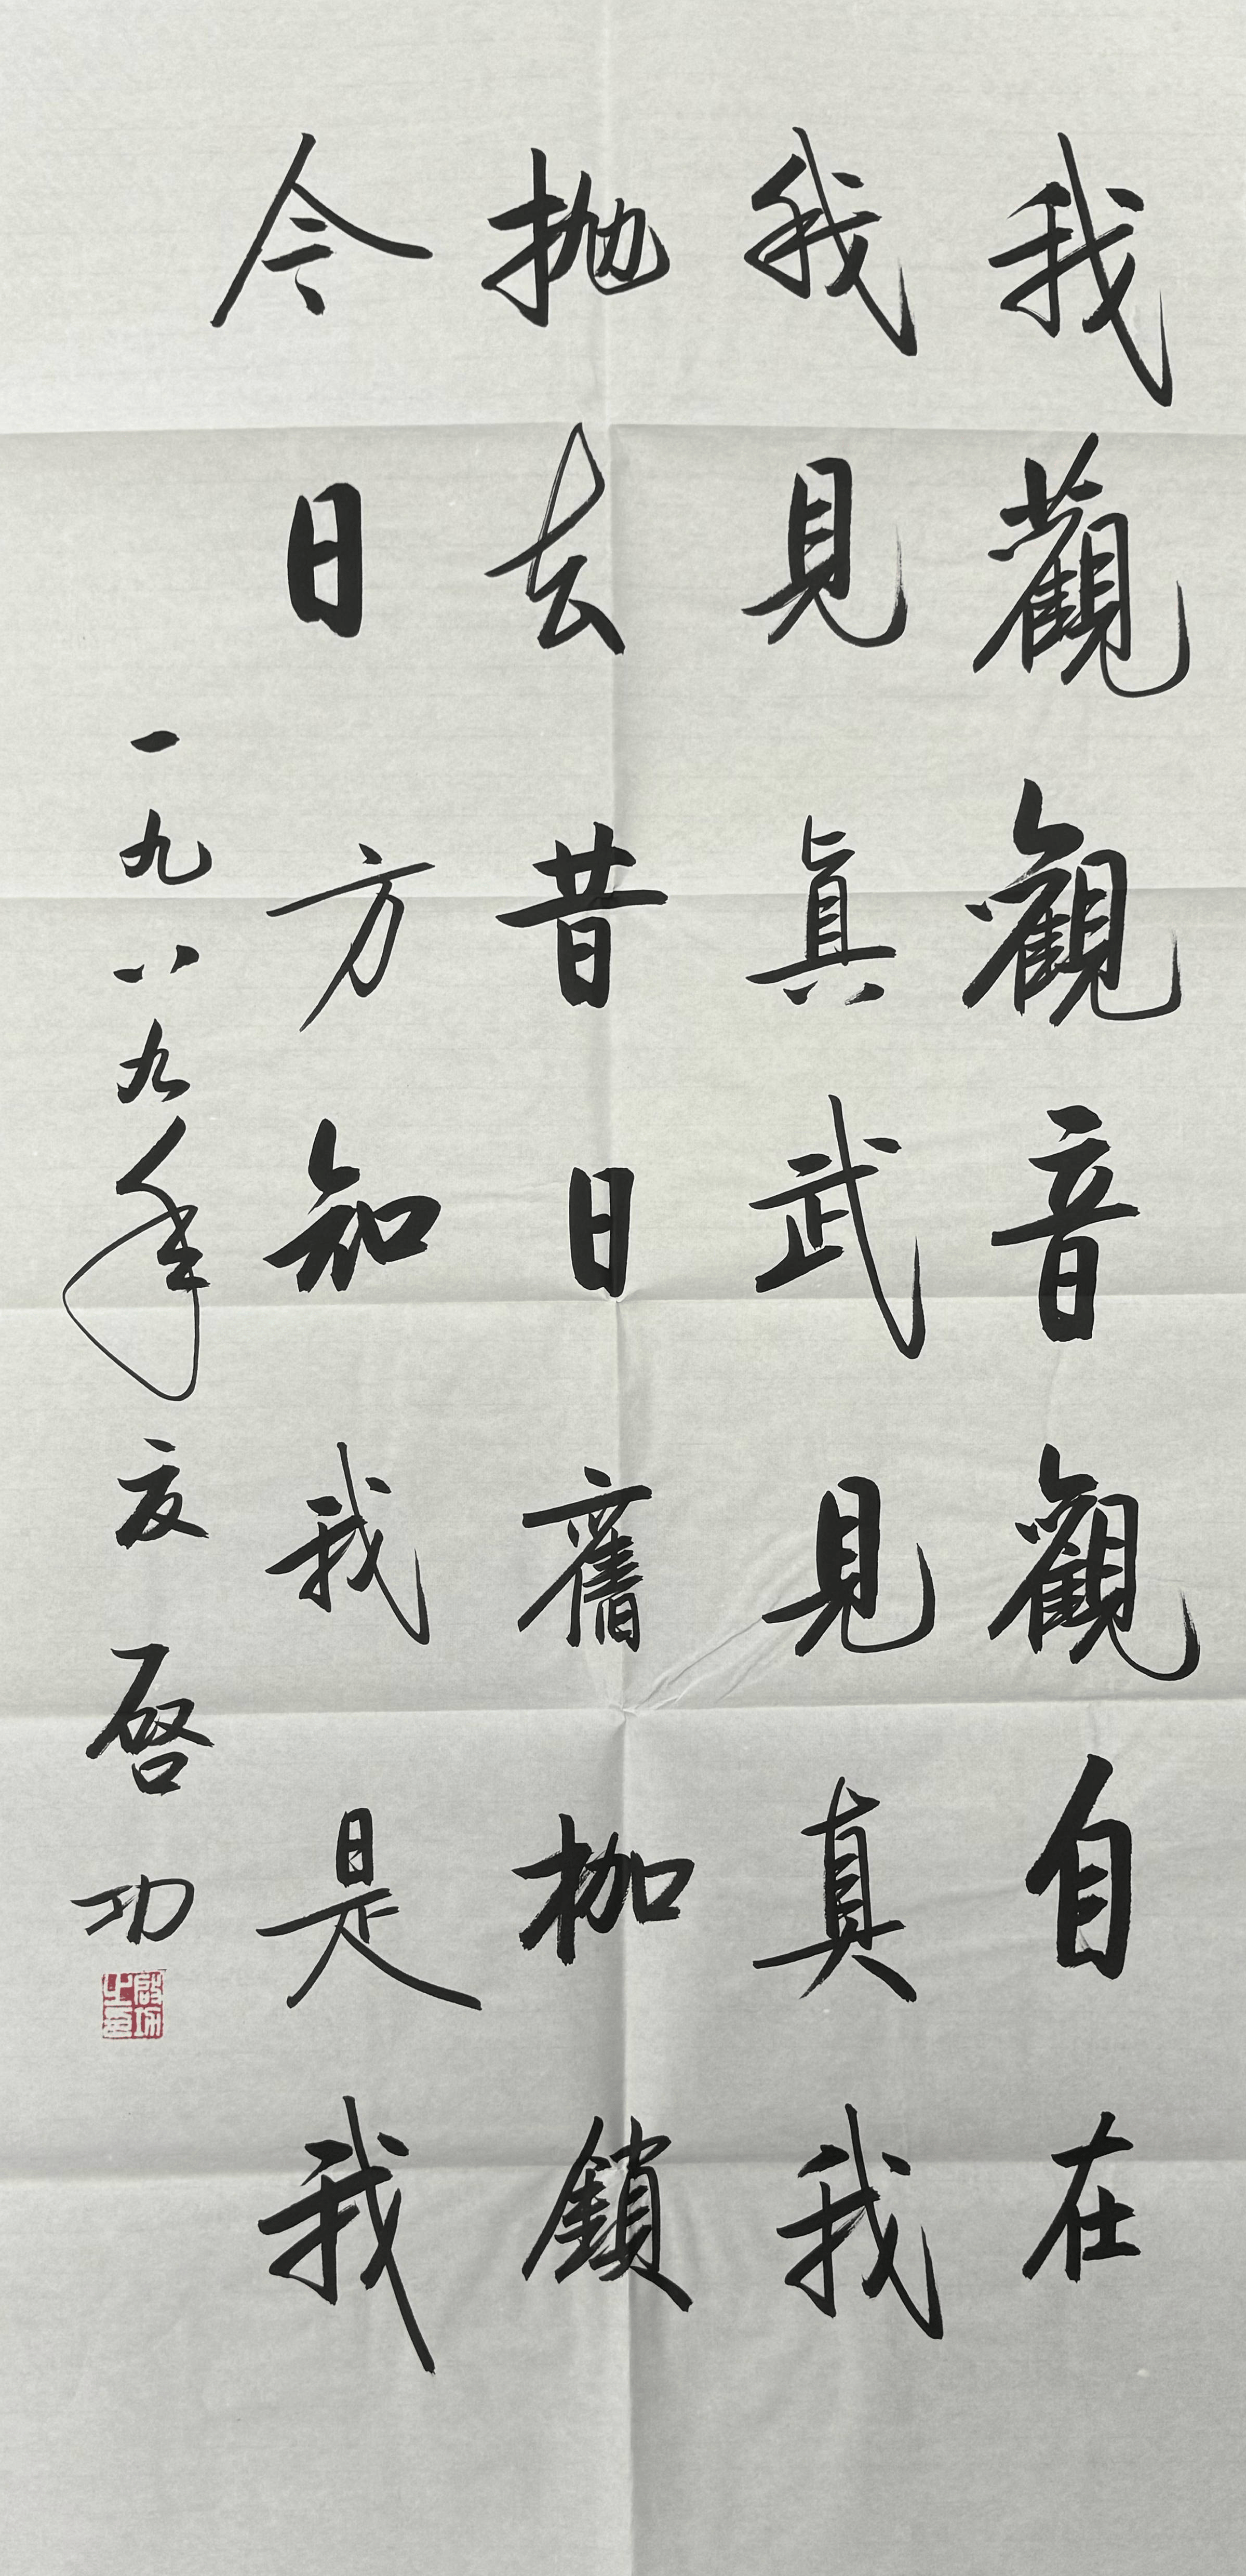 我觀觀音觀自在
我見眞武見真我
抛去昔日舊枷鎖
今日方知我是我
一九八九年夏啓功
啟功之印